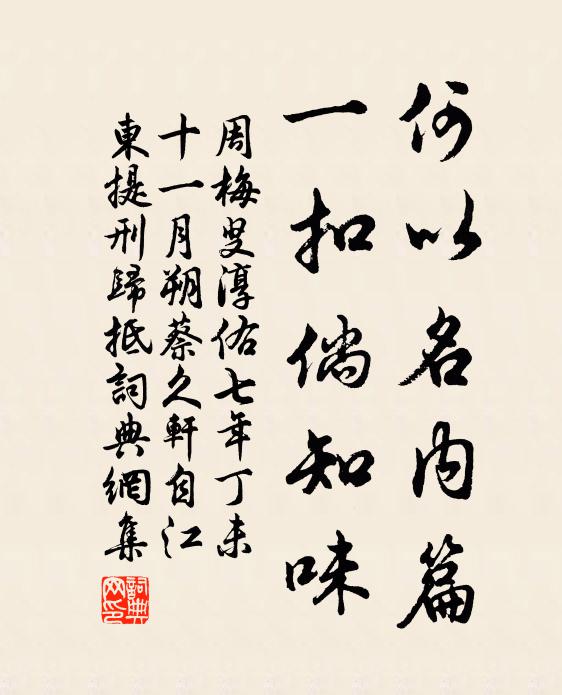 何以名内篇
一扣倘知味
周梅叟淳佑七年丁未
十一月朔蔡久軒自江
東提刑歸抵詞典網集
詞典
网印